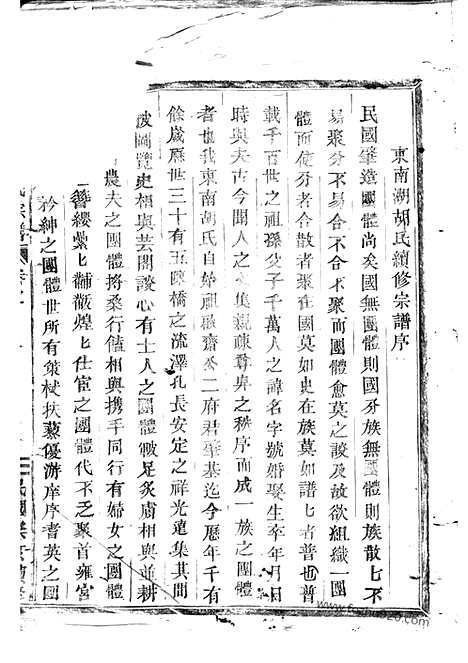 東南湖胡氏續修宗譜序
民國肇造團體尚矣國無團體則國分族無團體則族散七不
易聚分不易合不合不聚而團體愈莫之談及故欲組織一團
體而使分者合散者聚在國莫如史在族莫如譜七者普也普
載千百世之祖孫父子千萬人之諱名字號婚娶生卒年月日
時與夫古今聞人之文集親疎尊卑之秩序而成一族之團體
者也我東南胡氏自始祖融齋公二府君肇基迄今歷年千有
餘歲歷世三十有五陳橋之流澤孔長安定之祥光遠集其間
披圖覽史相與芸閣談心有士人之團體皸足炙膚相與並耕
農夫之團體將桑行饁相與携手同行有婦女之團體
簪纓纍七黼黻煌七仕宦之團體代不乏聚首雍宮
衿紳之團體世所有策杖扶藜優游庠序耆英之團